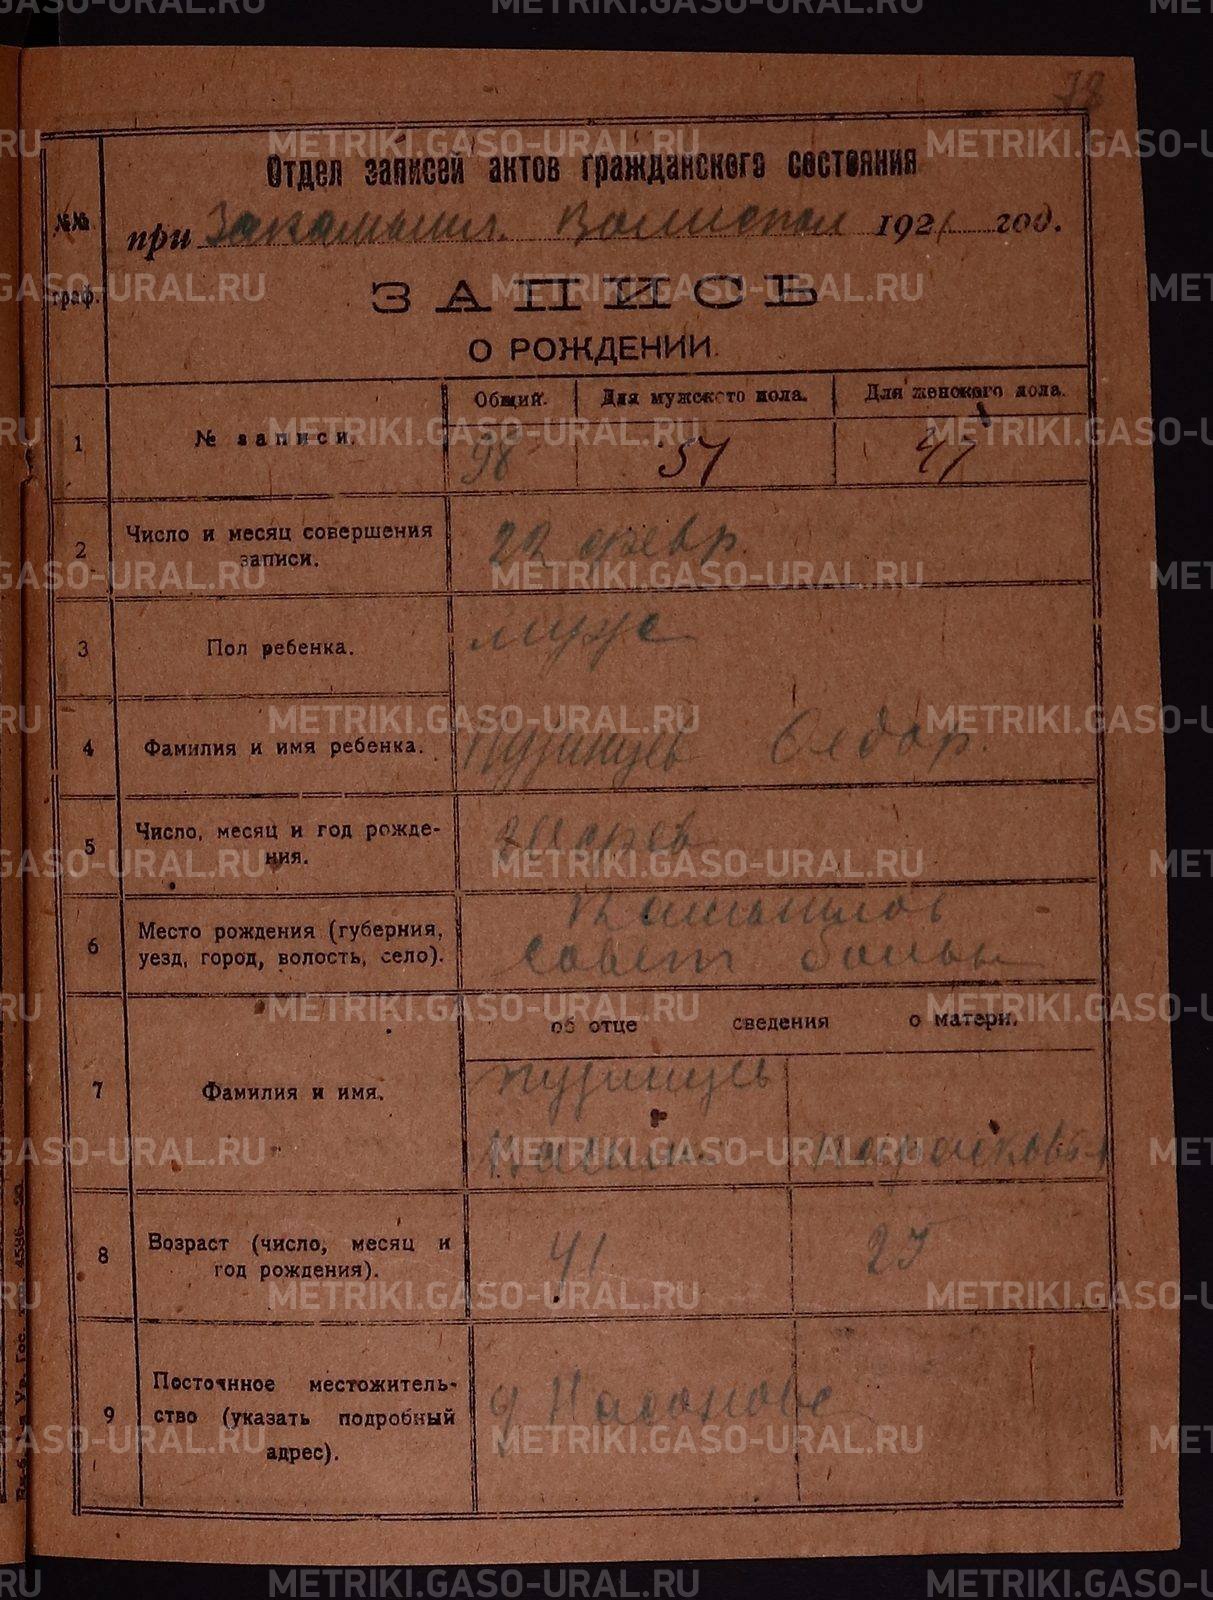 78
Отдел записей актов гражданского состояния
при Закамышл. Волиспол 1921 год.
№№ граф.
ЗАПИСЬ
О РОЖДЕНИИ.
Общий. Для мужского пола. Для женского пола.
1 № записи. 98 51 47
2 Число и месяц совершения
записи.
22 февр.
3 Пол ребенка. муж
4 Фамилия и имя ребенка. Пузанцев Федор.
5 Число, месяц и год рожде-
ния.
февр
6 Место рождения (губерния,
уезд, город, волость, село).
Камышлов
совет больн
об отце сведения о матери.
7 Фамилия и имя.
Пузанцев
Парасковья
8 Возраст (число, месяц и
год рождения).
41 27
9 Постоянное местожитель-
ство (указать подробный
адрес).
д Насонове
METRIKI.GASO-URAL.RU